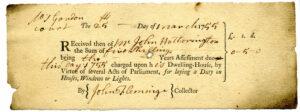 Mrs Gordon
Court The 25th Day of March 1755
Received then of Mr John Hatterington
the Sum of five Shillings
being the Years Assessment due
this Day of 1755 charged upon his Dwelling-House, by
Virtue of several Acts of Parliament, for laying a Duty on
Houses, Windows or Lights.
By John Fleminge Collector
0-5-0